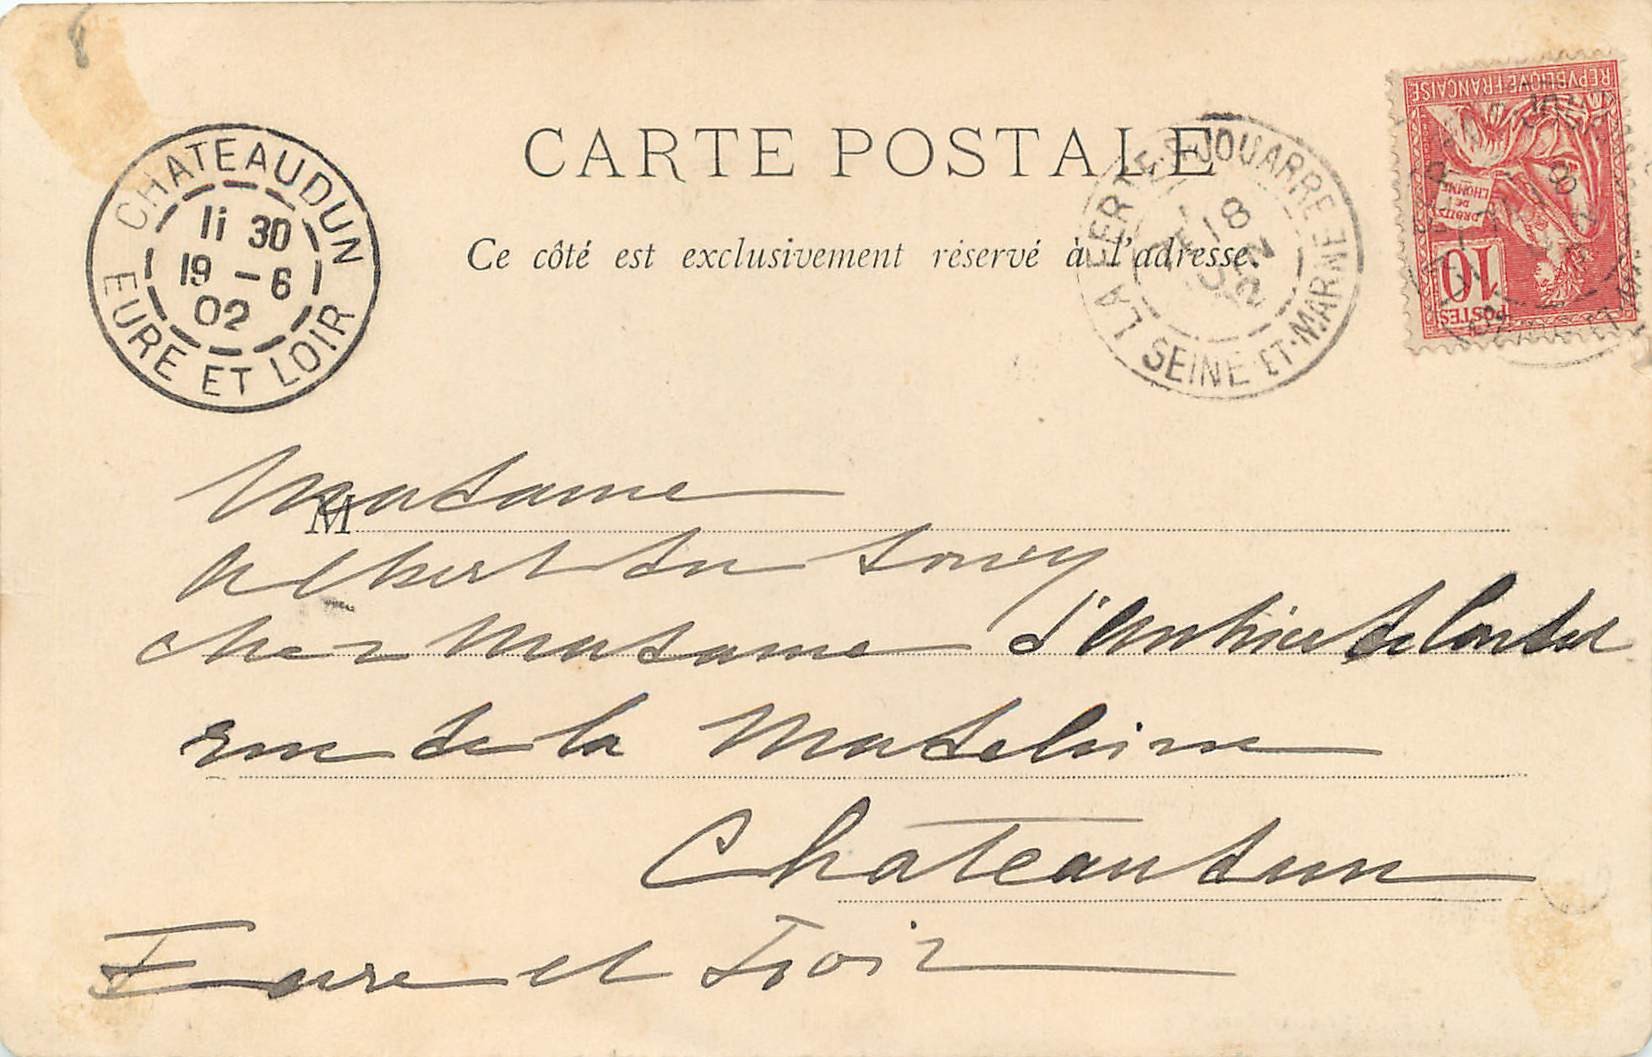 8
CARTE POSTALE
Ce côté est exclusivement réservé à l'adresse.
CHATEAUDUN
11 30
19 -6
02
EURE ET LOIR
LA FERTE-S-JOUARRE
18
JUIN
02
SEINE-ET-MARNE
REPUBLIQUE FRANÇAISE
DROITS
DE
L'HOMME
10
POSTES
Madame
M
Albert du
chez Madame
rue de la Madeleine
Chateaudun
Eure et Loir